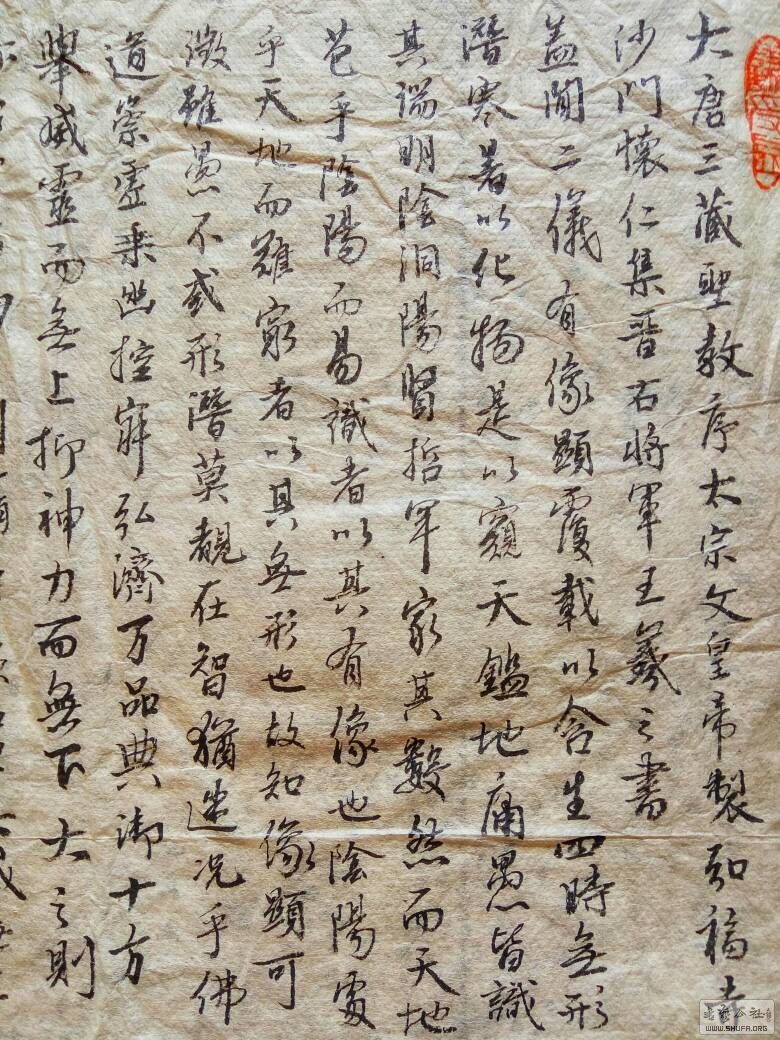 大唐三藏聖教序太宗文皇帝製弘福寺
沙門懷仁集晉右將軍王羲之書
蓋聞二儀有像顯覆載以含生四時無形
潛寒暑以化物是以窺天鑑地庸愚皆識
其端明陰洞陽賢哲罕窮其數然而天地
苞乎陰陽而易識者以其有像也陰陽處
乎天地而難窮者以其無形也故知像顯可
徵雖愚不惑形潛莫覩在智猶迷況乎佛
道崇虛乘幽控寂弘濟万品典御十方
舉威靈而無上抑神力而無下大之則
WWW.SHUFA.ORG